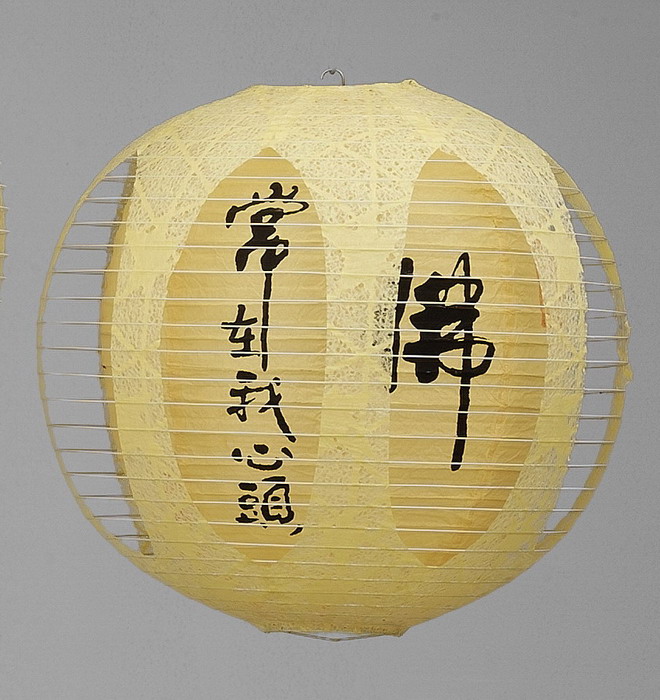 佛
常在我心頭